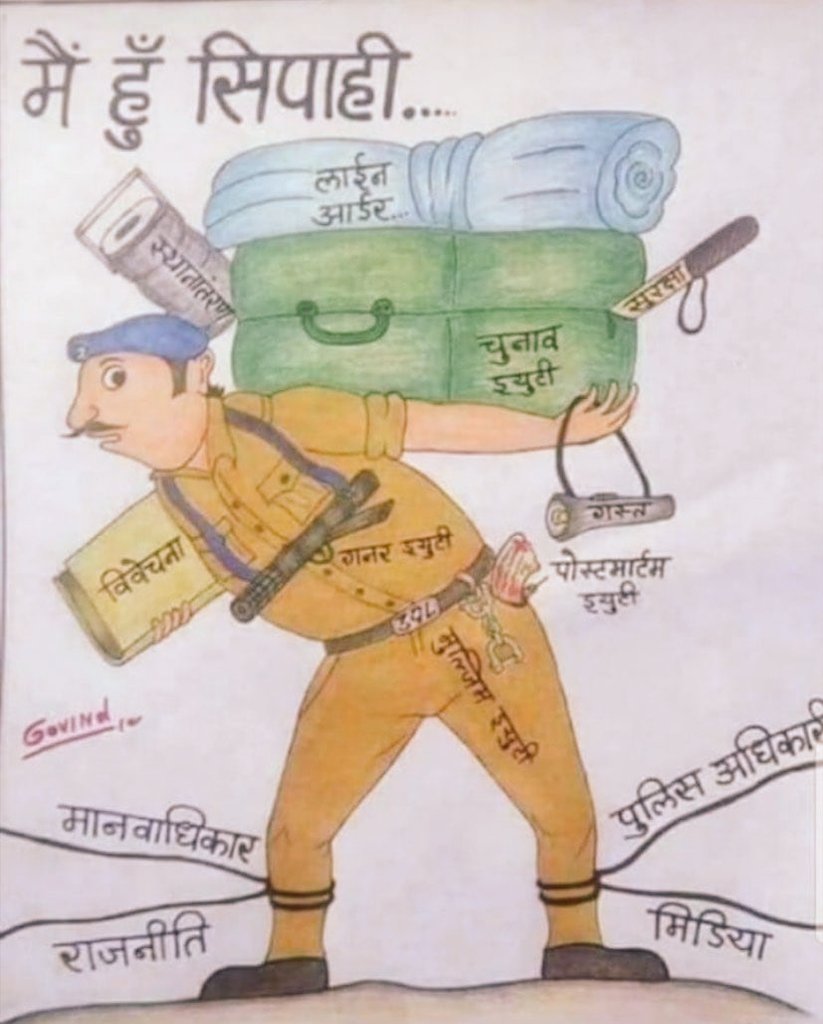 मैं हूँ सिपाही.....
लाईन
आर्डर...
स्थानांतरण
सुरक्षा
चुनाव
ड्युटी
गस्त
विवेचना
गनर ड्युटी
पोस्टमार्टम
ड्युटी
मुल्जिम ड्युटी
Govind
मानवाधिकार
पुलिस अधिकारी
राजनीति
मिडिया